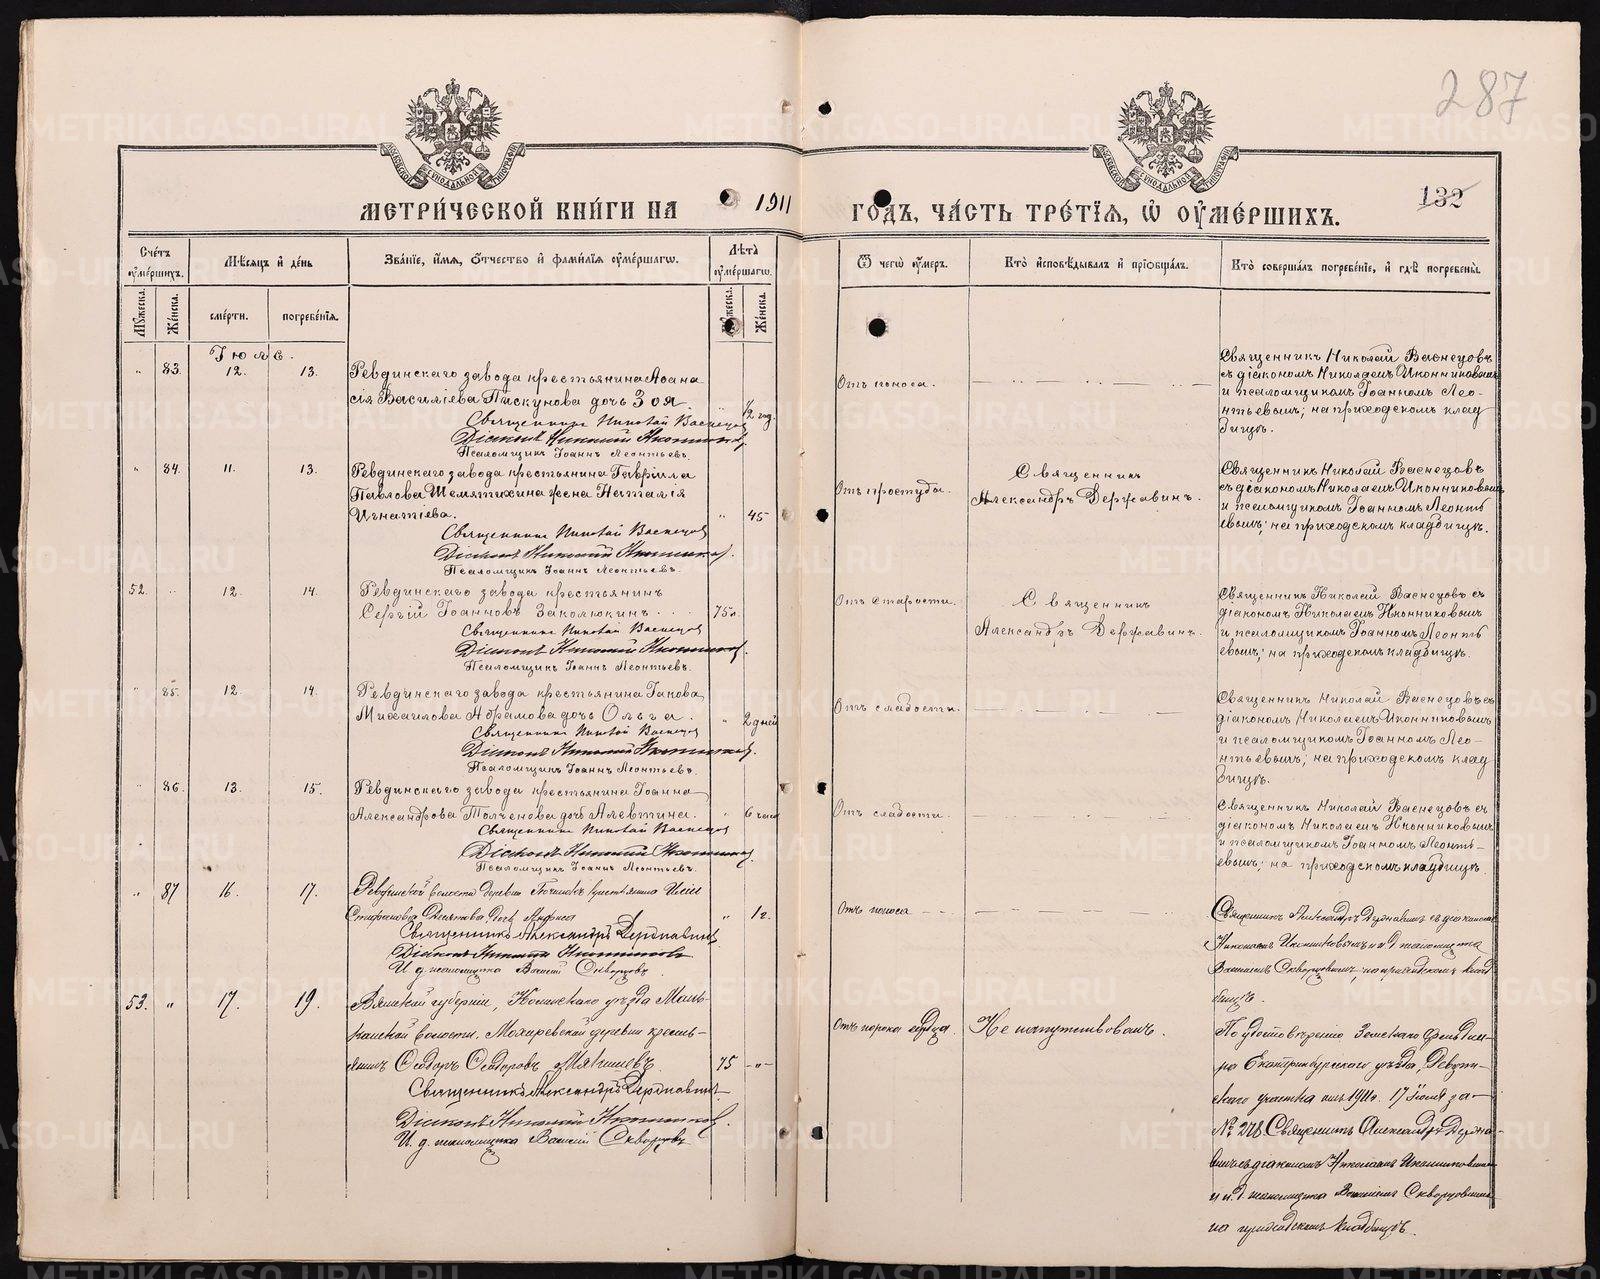 287
132
МЕТРИЧЕСКОЙ КНИГИ НА 1911 ГОДЪ, ЧАСТЬ ТРЕТІЯ, Ѿ ОУМЕРШИХЪ.
Счетъ оумершихъ.
Мѣсяцъ и день
Званіе, имя, отчество и фамилія оумершагѡ.
Лѣта оумершагѡ.
Ѿ чегѡ оумеръ.
Кто исповѣдывалъ и пріобщалъ.
Кто совершалъ погребеніе, и гдѣ погребены.
Мужеска.
Женска.
смерти.
погребенія.
Мужеска.
Женска.
Іюль.
" 83. 12. 13.
Ревдинскаго завода крестьянина Аѳана
сія Васильева Пискунова дочь Зоя.
1/2 год.
Священникъ Николай Васнецов
Діаконъ Николай Иконников
Псаломщикъ Іоаннъ Леонтьевъ.
Отъ поноса.
Священникъ Николай Васнецовъ
съ діакономъ Николаемъ Иконниковымъ
и псаломщикомъ Іоанномъ Лео-
нтьевымъ; на приходскомъ клад
бищѣ.
" 84. 11. 13.
Ревдинскаго завода крестьянина Гавріила
Павлова Шемятихина жена Наталія
Игнатіева. " 45
Священникъ Николай Васнецов
Діаконъ Николай Иконников.
Псаломщикъ Іоаннъ Леонтьевъ.
Отъ простуды.
Священникъ
Александръ Державинъ.
Священникъ Николай Васнецовъ
съ діакономъ Николаемъ Иконниковымъ
и псаломщикомъ Іоанномъ Леонть
евымъ; на приходскомъ кладбищѣ.
52. " 12. 14.
Ревдинскаго завода крестьянинъ
Сергій Іоанновъ Заколюкинъ. 75 л.
Священникъ Николай Васнецов
Діаконъ Николай Иконников.
Псаломщикъ Іоаннъ Леонтьевъ.
Отъ старости.
Священникъ
Александръ Державинъ.
Священникъ Николай Васнецовъ съ
діакономъ Николаемъ Иконниковымъ
и псаломщикомъ Іоанномъ Леонть
евымъ; на приходскомъ кладбищѣ.
" 85. 12. 14.
Ревдинскаго завода крестьянина Іакова
Михаилова Абрамова дочь Ольга. " 2 дней
Священникъ Николай Васнецов
Діаконъ Николай Иконников.
Псаломщикъ Іоаннъ Леонтьевъ.
Отъ слабости.
Священникъ Николай Васнецовъ съ
діакономъ Николаемъ Иконниковымъ
и псаломщикомъ Іоанномъ Лео-
нтьевымъ; на приходскомъ клад
бищѣ.
" 86. 13. 15.
Ревдинскаго завода крестьянина Іоанна
Александрова Толченова дочь Алевтина. " 6 час
Священникъ Николай Васнецов
Діаконъ Николай Иконников
Псаломщикъ Іоаннъ Леонтьевъ.
Отъ слабости.
Священникъ Николай Васнецовъ съ
діакономъ Николаемъ Иконниковымъ
и псаломщикомъ Іоанномъ Леонть-
евымъ; на приходскомъ кладбищѣ.
" 87 16. 17.
Ревдинской волости деревни крестьянина
Стефанова дочь Анфиса " 1 г.
Священникъ Александръ Державинъ
Діаконъ Николай Иконников
И. д. псаломщика Василій Скворцовъ
Отъ поноса
Священникъ Александръ Державинъ съ діакономъ
Николаемъ Иконниковымъ и и. д. псаломщика
Василіемъ Скворцовымъ; на приходскомъ клад
бищѣ.
53. " 17. 19.
Вятской губерніи, уѣзда
волости, деревни кресть-
янинъ Ѳеодоръ Ѳеодоровъ Мякишевъ. 75 -"-
Священникъ Александръ Державинъ
Діаконъ Николай Иконников.
И. д. псаломщика Василій Скворцовъ
Отъ порока сердца.
Не напутствованъ.
По удостовѣренію Земскаго
ра Екатеринбургскаго уѣзда, Ревдин-
скаго участка отъ 1911 г. 17 Іюля за
№ 278. Священникъ Александръ Держа-
винъ съ діакономъ Николаемъ Иконниковымъ
и и. д. псаломщика Василіемъ Скворцовымъ
на приходскомъ кладбищѣ.